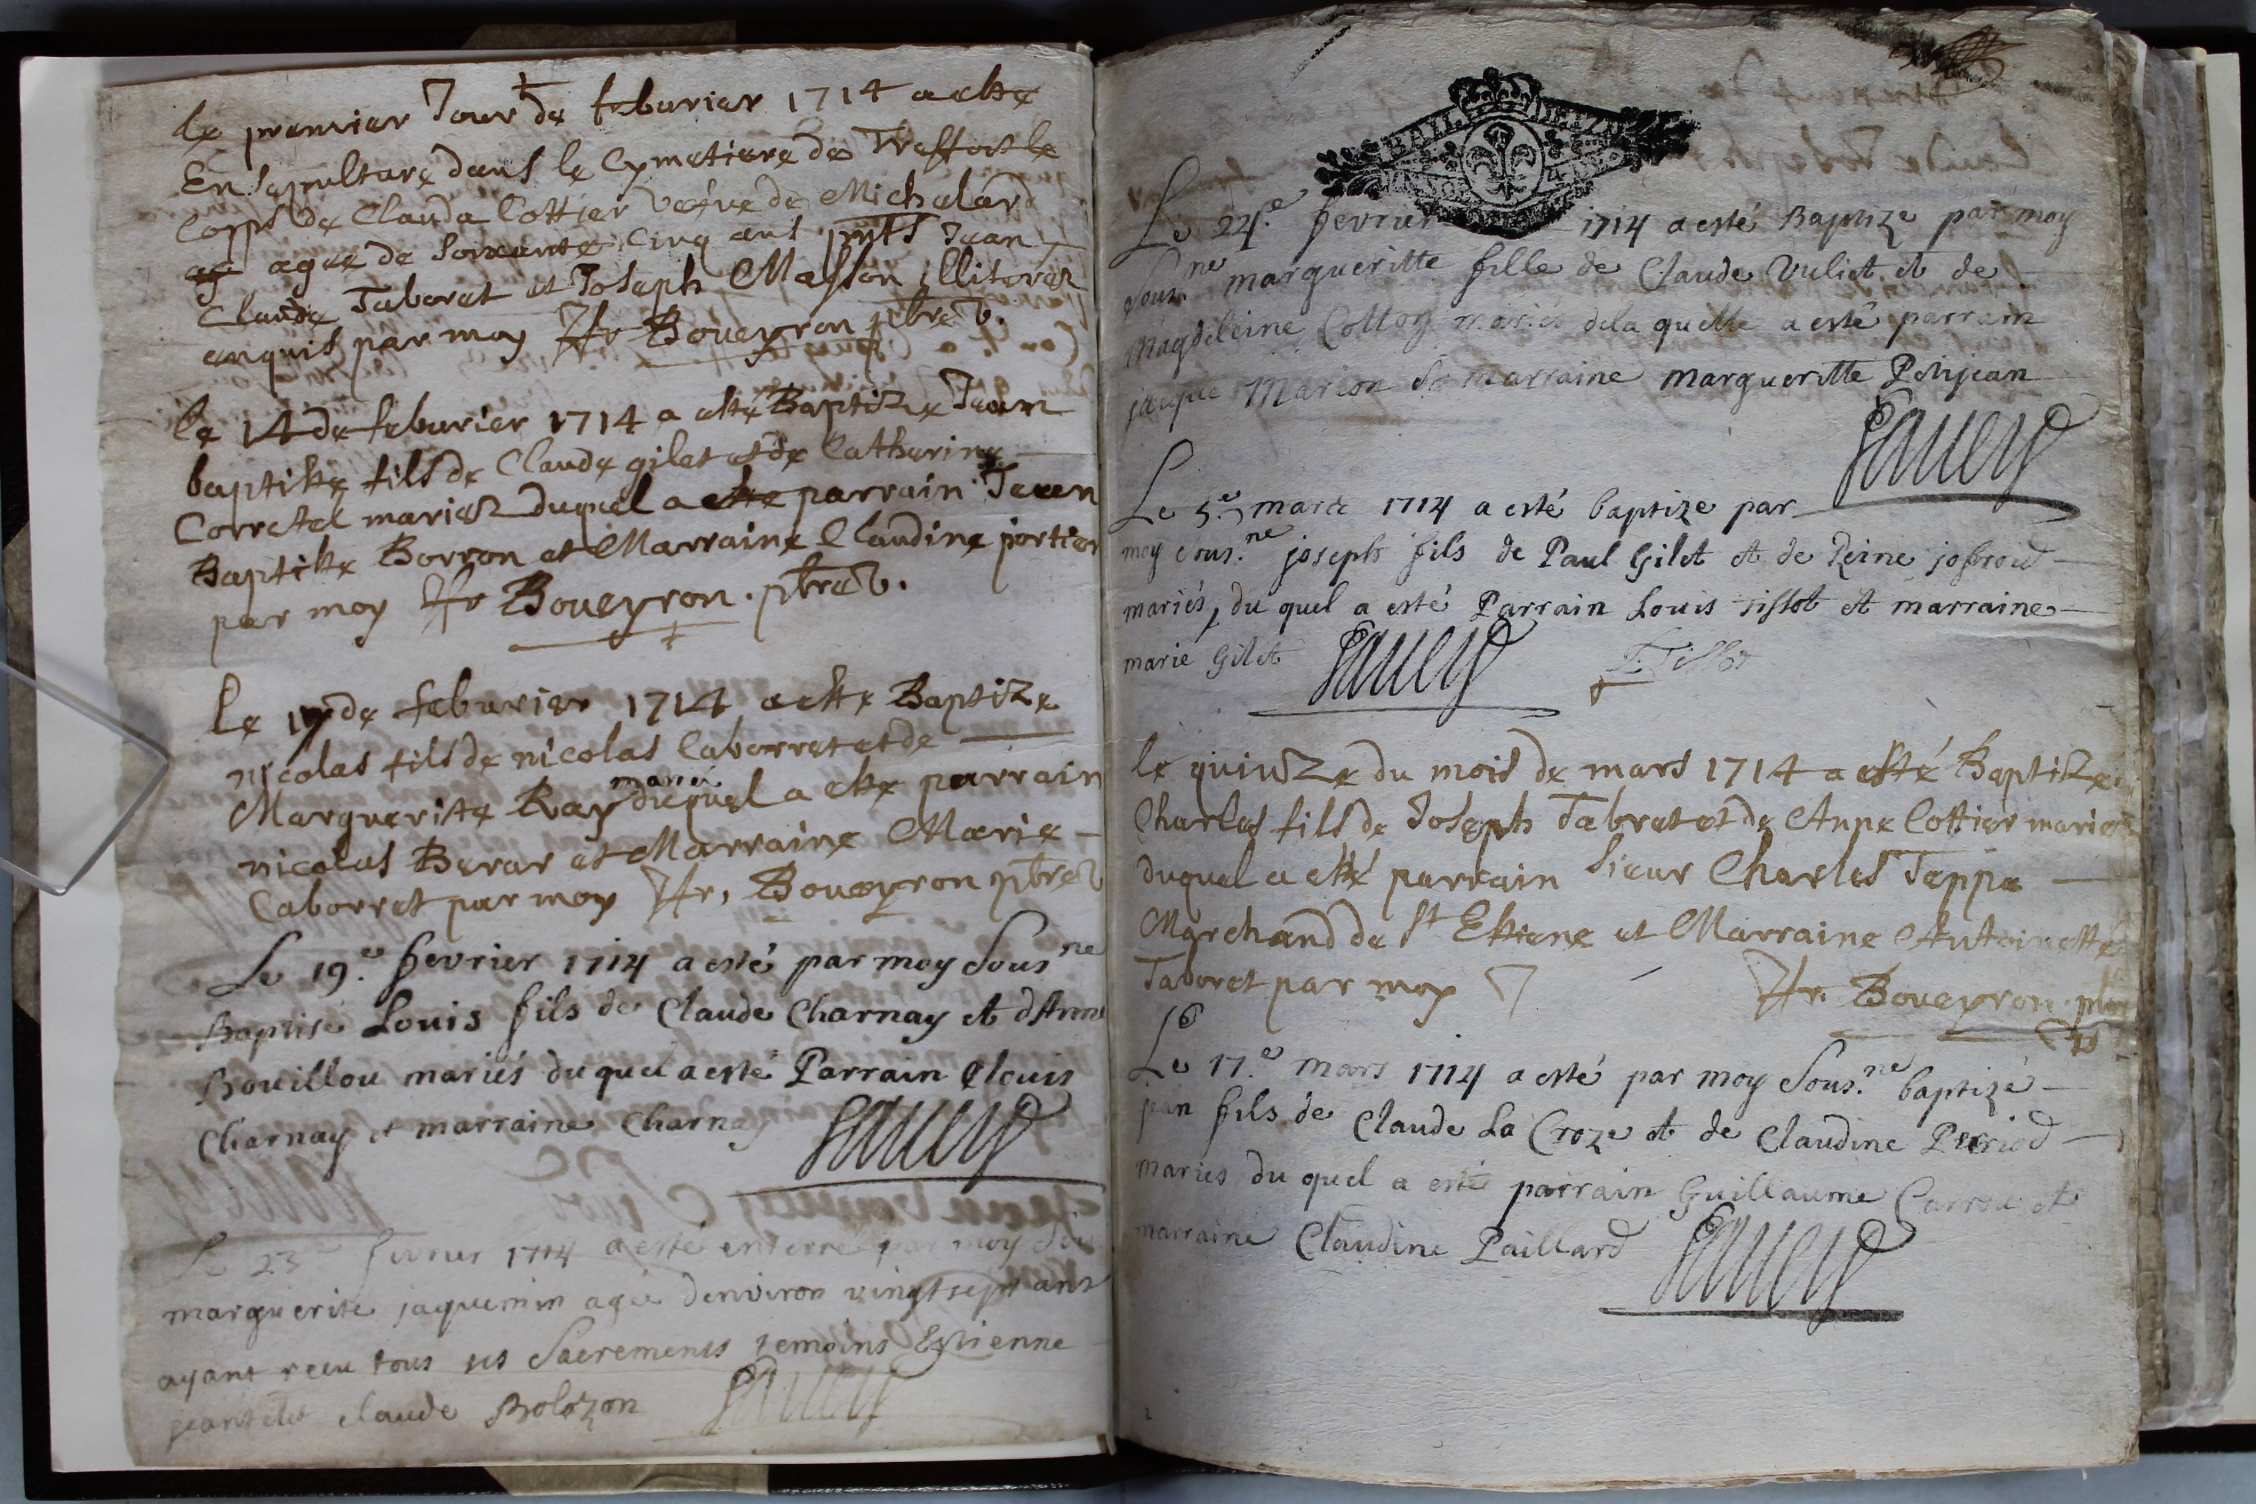 le premier Jour de feburier 1714 a este
En sepulture dans le Cymetiere de Treffort le
Corps de Clauda Cottier vefve de Michalard
agee de soixante cinq ans pnts Jean
Claude Taboret et Joseph Masson illiteres
enquis par moy Fr Boueyron pbre v.
le 14 de feburier 1714 a esté Baptize Jean
baptiste fils de Claude gilet et de Catherine
Corretel mariez duquel a este parrain Jean
Baptiste Borron et Marraine Claudine portier
par moy Fr Boueyron. pbre v.
Le 17 de feburier 1714 a este Baptize
nicolas fils de nicolas Caborret et de
Marguerite Ray mariez duquel a este parrain
nicolas Berar et Marraine Marie
Caborret par moy Fr. Boueyron pbre v
Le 19.e fevrier 1714 a esté par moy Sous.ne
Baptisé Louis fils de Claude Charnay et d'Anne
Bouillou mariés du quel a esté Parrain Louis
Charnay et marraine Charnay
Le 23 fevrier 1714 a esté enterré par moy Sou
marguerite jaquemin agée denviron vingt sept ans
ayant receu tous ses Sacrements temoins Estienne
jeantelet claude Bolozon
Le 24.e fevrier 1714 a esté Baptize par moy
Sous.ne margueritte fille de Claude Vuliet et de
Magdeleine Cottoy mariés de la quelle a esté parrain
jaque Marion et marraine margueritte Petijean
Le 5.e mars 1714 a esté baptize par
moy sous.ne joseph fils de Paul Gilet et de Reine josserand
mariés, du quel a esté Parrain Louis tissot et marraine
marie Gilet L. Tissot
le quinze du mois de mars 1714 a esté Baptizé
Charles fils de Joseph Tabret et de Anne Cottier mariez
duquel a esté parrain Sieur Charles Tappe
Marchand de St Estiene et Marraine Antoinette
Taboret par moy Fr. Boueyron pbre
Le 17.e mars 1714 a esté par moy Sous.ne baptizé
jean fils de Claude La Croze et de Claudine Perriod
mariés du quel a esté parrain Guillaume Carrou et
marraine Claudine Paillard